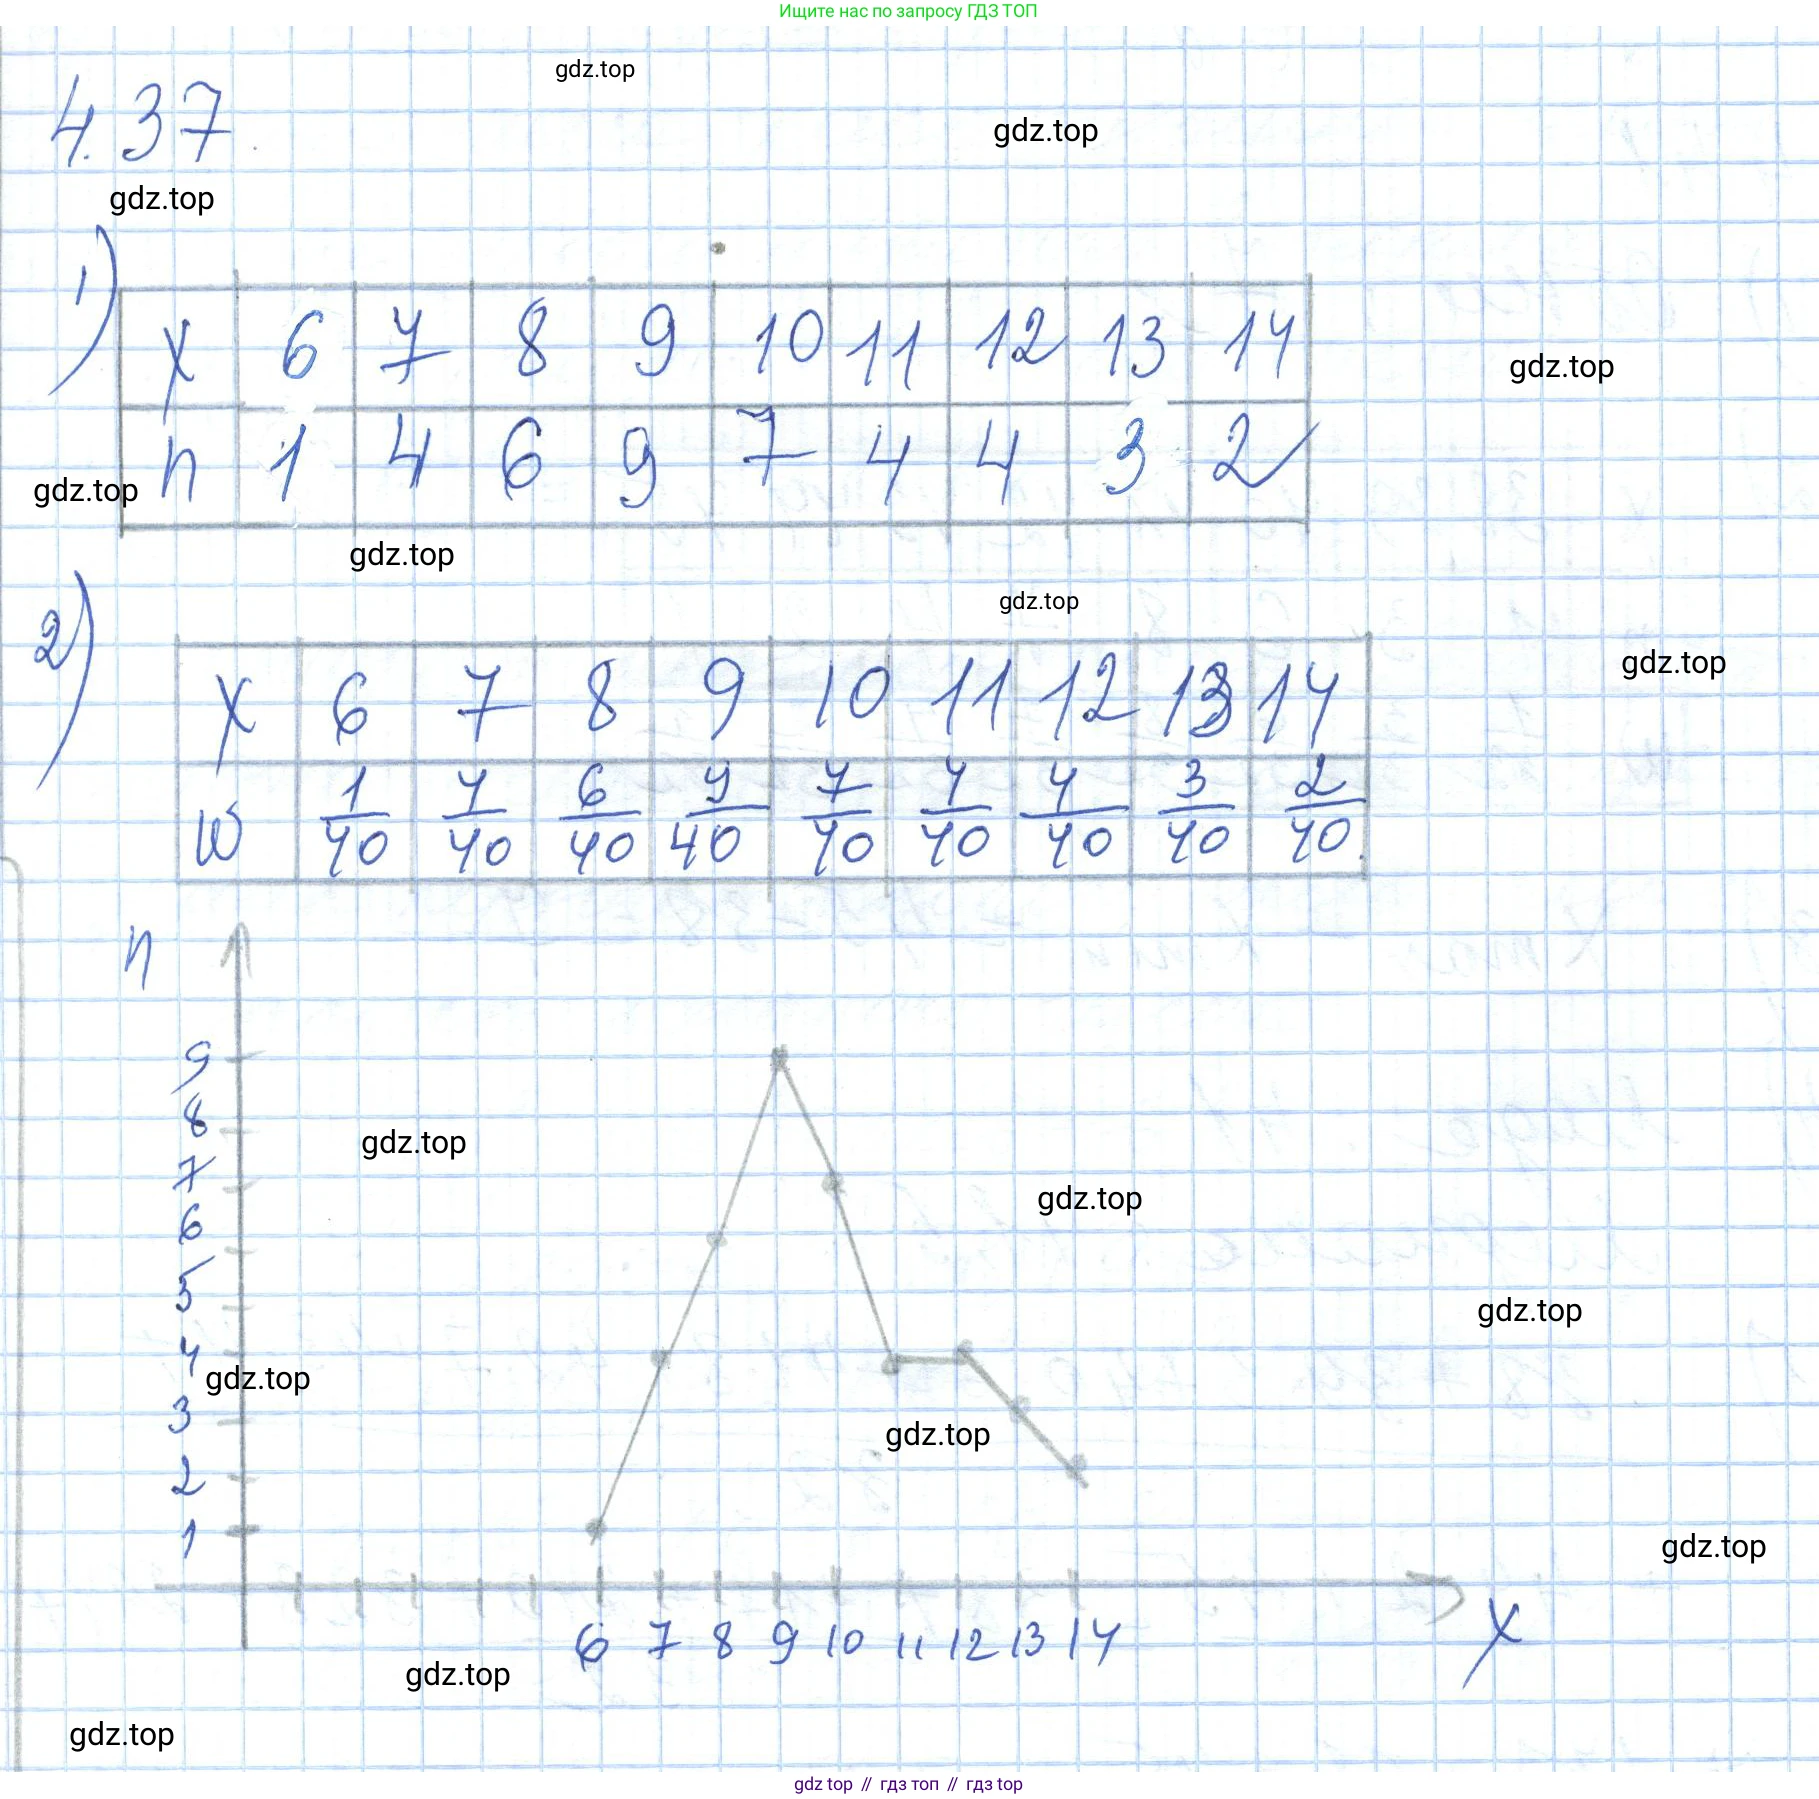 Ищите нас по запросу ГДЗ ТОП
gdz.top
4.37.
gdz.top
gdz.top
1)
x 6 7 8 9 10 11 12 13 14
gdz.top
n 1 4 6 9 7 4 4 3 2
gdz.top
gdz.top
gdz.top
2)
gdz.top
x 6 7 8 9 10 11 12 13 14
w 1/40 4/40 6/40 9/40 7/40 4/40 4/40 3/40 2/40
n
9
8
gdz.top
7
gdz.top
6
5
gdz.top
4
gdz.top
3
gdz.top
2
1
gdz.top
6 7 8 9 10 11 12 13 14 x
gdz.top
gdz.top
gdz top // гдз топ // гдз top